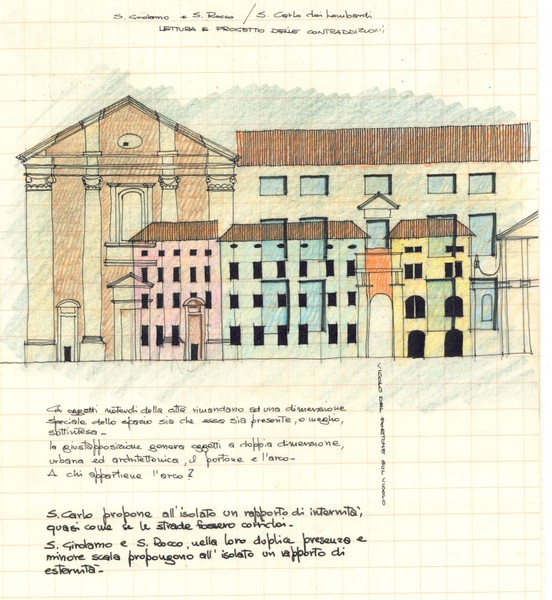 S. Girolamo e S. Rocco / S. Carlo dei Lombardi
LETTURA E PROGETTO DELLE CONTRADDIZIONI
Gli oggetti notevoli della città rimandano ad una dimensione
speciale dello spazio sia che essa sia presente, o meglio,
sottintesa-
la giustapposizione genera oggetti a doppia dimensione,
urbana ed architettonica, il portone e l'arco-
A chi appartiene l'arco?
S. Carlo propone all'isolato un rapporto di internità,
quasi come se le strade fossero corridoi-
S. Girolamo e S. Rocco, nella loro duplice presenza e
minore scala propongono all'isolato un rapporto di
esternità-